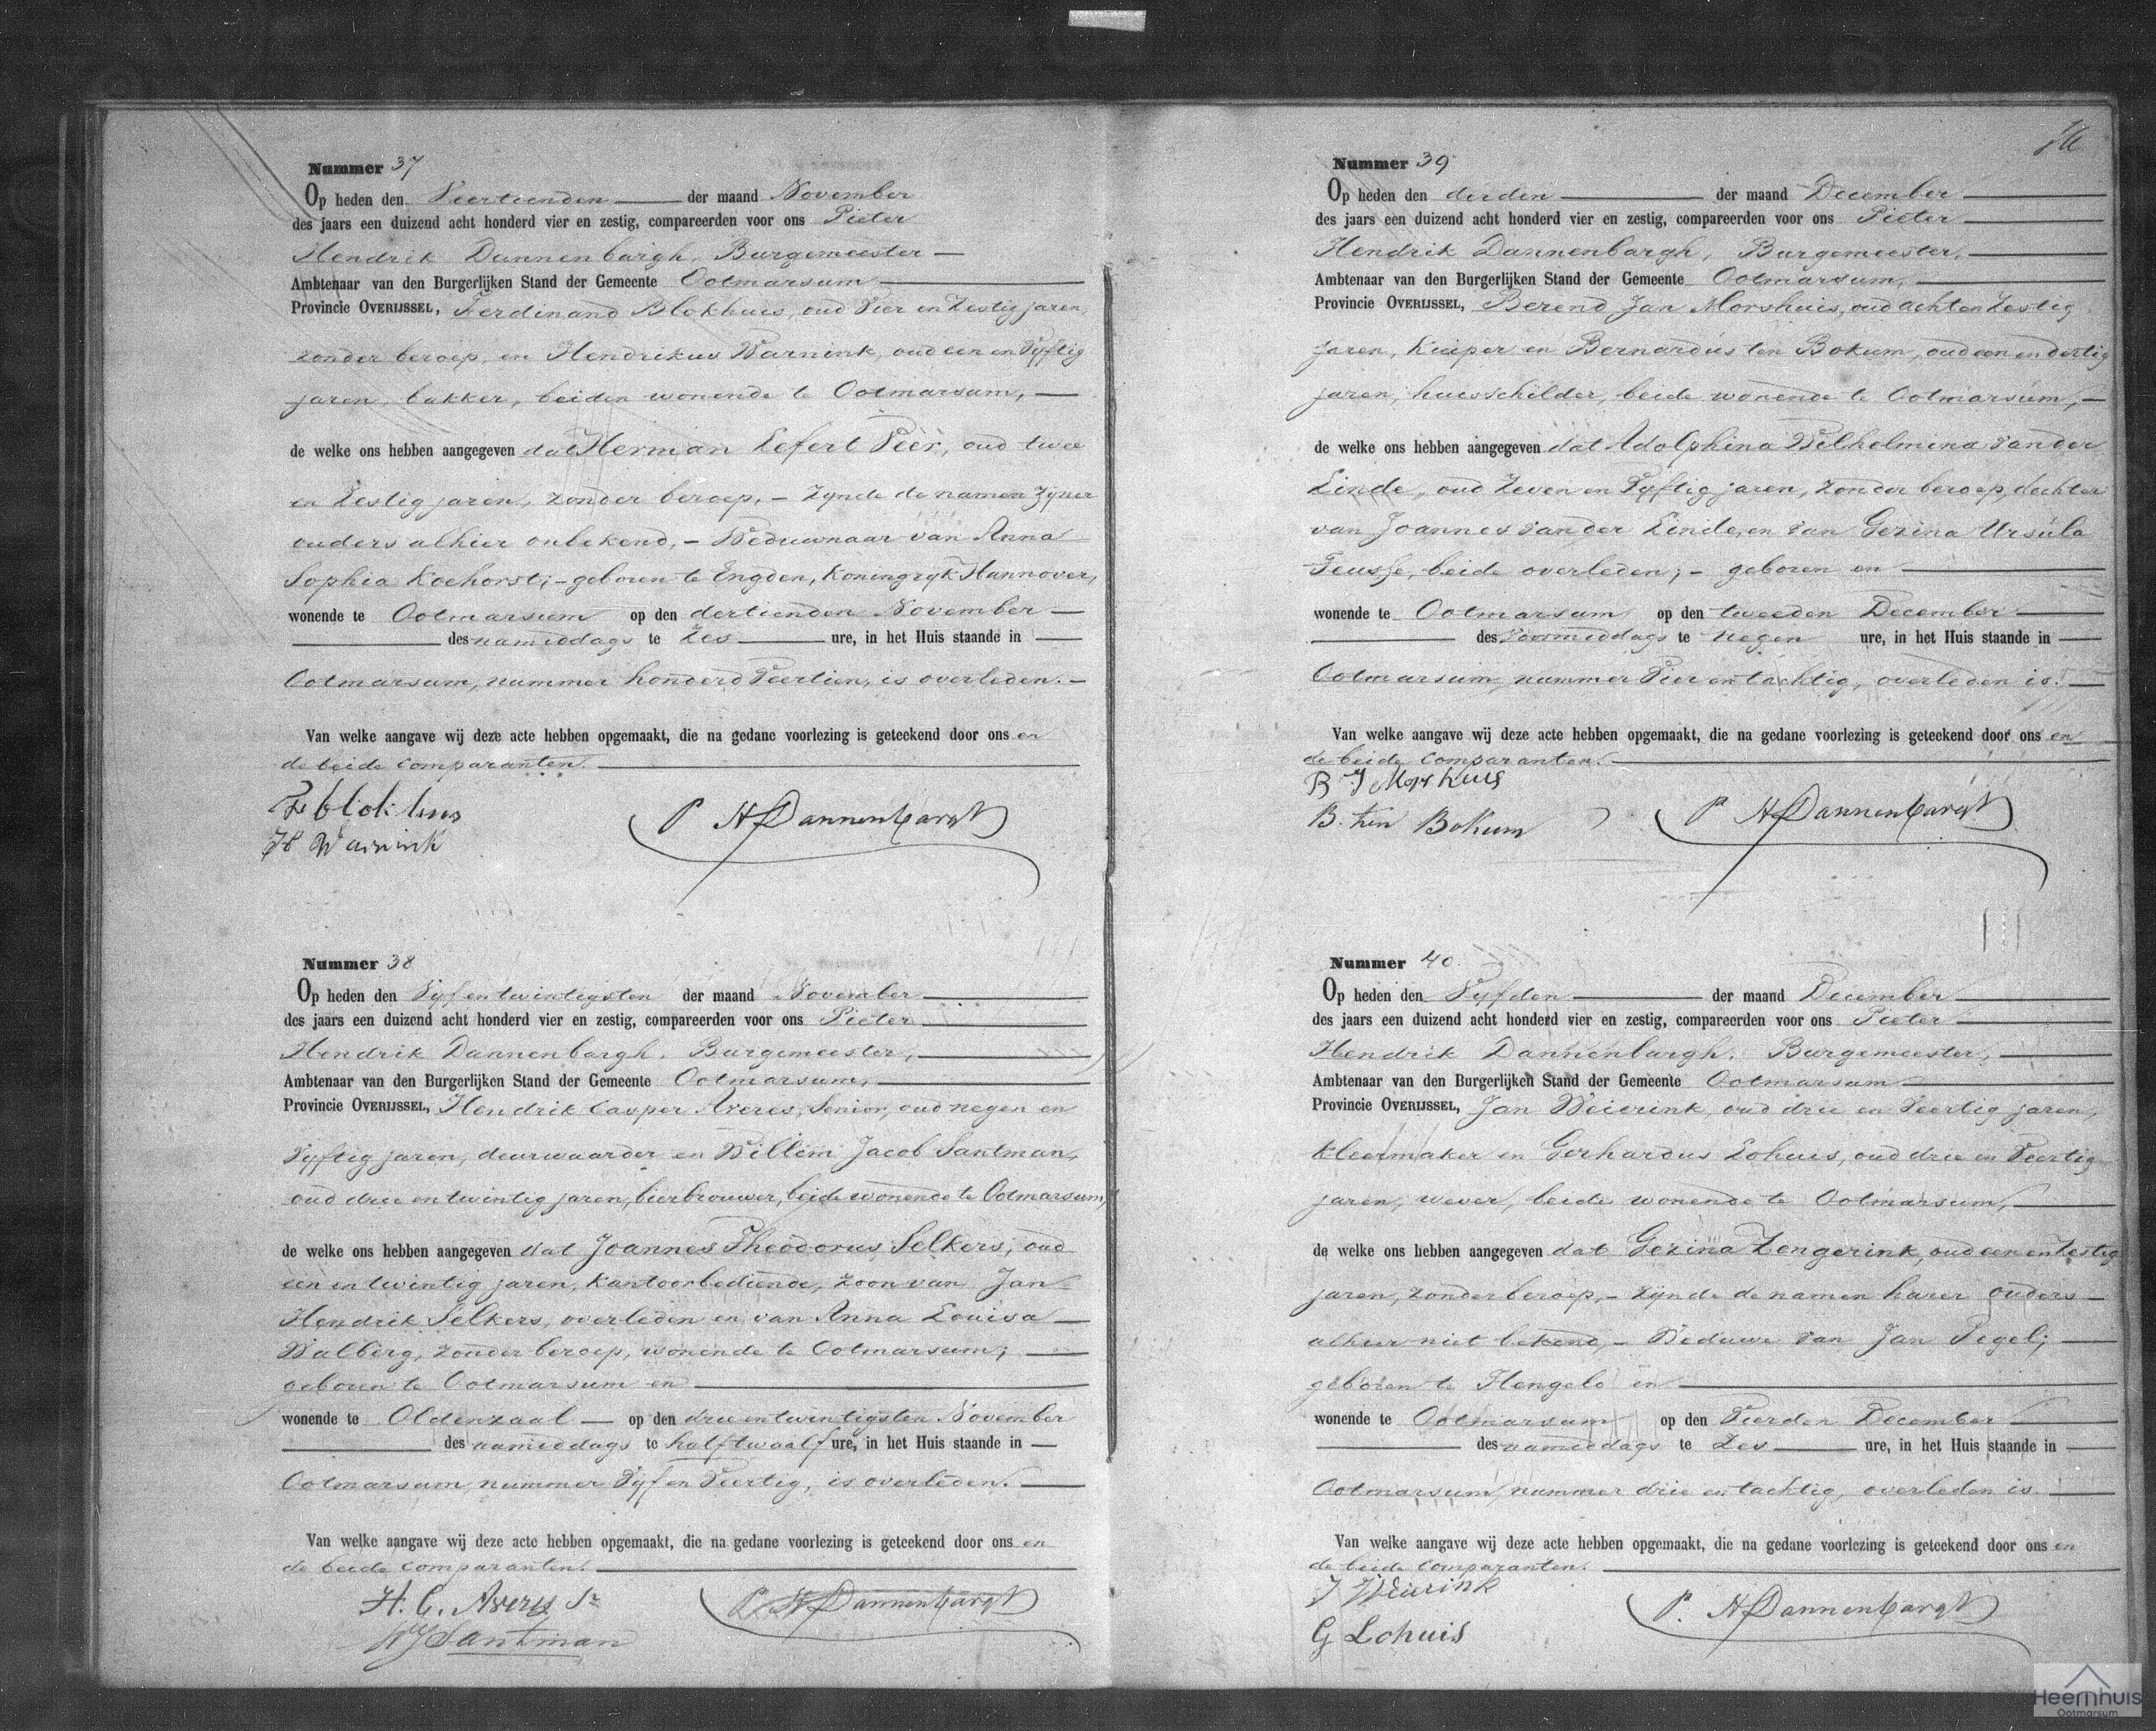 Nummer 37
Op heden den Veertienden der maand November
des jaars een duizend acht honderd vier en zestig, compareerden voor ons Pieter
Hendrik Dannenbargh, Burgemeester
Ambtenaar van den Burgerlijken Stand der Gemeente Ootmarsum
Provincie OVERIJSSEL, Ferdinand Blokhuis, oud Vier en Zestig jaren,
zonder beroep, en Hendrikus Warnink, oud een en Vyftig
jaren, bakker, beiden wonende te Ootmarsum,
de welke ons hebben aangegeven dat Herman Lefert Veer, oud twee
en Zestig jaren, zonder beroep, - Zynde de namen Zyner
ouders alhier onbekend, - Weduwnaar van Anna
Sophia Koehorst; - geboren te Engden, Koningryk Hannover,
wonende te Ootmarsum op den dertienden November
des namiddags te Zes ure, in het Huis staande in
Ootmarsum, nummer honderd Veertien, is overleden. -
Van welke aangave wij deze acte hebben opgemaakt, die na gedane voorlezing is geteekend door ons en
de beide comparanten.
F blokhuis
H Warnink
P H Dannenbargh
Nummer 38
Op heden den Vyf en twintigsten der maand November
des jaars een duizend acht honderd vier en zestig, compareerden voor ons Pieter
Hendrik Dannenbargh, Burgemeester,
Ambtenaar van den Burgerlijken Stand der Gemeente Ootmarsum,
Provincie OVERIJSSEL, Hendrik Casper Averes, Senior, oud negen en
Vyftig jaren, deurwaarder en Willem Jacob Santman,
oud drie en twintig jaren, bierbrouwer, beide wonende te Ootmarsum,
de welke ons hebben aangegeven dat Joannes Theodorus Selkers, oud
een en twintig jaren, kantoorbediende, zoon van Jan
Hendrik Selkers, overleden en van Anna Louisa
Walberg, zonder beroep, wonende te Ootmarsum;
geboren te Ootmarsum en
wonende te Oldenzaal op den drie en twintigsten November
des namiddags te half twaalf ure, in het Huis staande in
Ootmarsum, nummer Vyf en Veertig, is overleden.
Van welke aangave wij deze acte hebben opgemaakt, die na gedane voorlezing is geteekend door ons en
de beide comparanten.
H. C. Averes Sr
WJ Santman
P H Dannenbargh
Nummer 39
Op heden den derden der maand December
des jaars een duizend acht honderd vier en zestig, compareerden voor ons Pieter
Hendrik Dannenbargh, Burgemeester,
Ambtenaar van den Burgerlijken Stand der Gemeente Ootmarsum,
Provincie OVERIJSSEL, Berend Jan Morshuis, oud acht en Zestig
jaren, Kuiper en Bernardus ten Bokum, oud een en dertig
jaren, huisschilder, beide wonende te Ootmarsum,
de welke ons hebben aangegeven dat Adolphina Wilhelmina van der
Linde, oud Zeven en Vyftig jaren, zonder beroep, dochter
van Joannes van der Linde, en van Gezina Ursula
Teusse, beide overleden; - geboren en
wonende te Ootmarsum op den tweeden December
des Voormiddags te negen ure, in het Huis staande in
Ootmarsum, nummer Vier en tachtig, overleden is.
Van welke aangave wij deze acte hebben opgemaakt, die na gedane voorlezing is geteekend door ons en
de beide comparanten.
B J Morshuis
B. ten Bokum
P H Dannenbargh
Nummer 40
Op heden den Vyfden der maand December
des jaars een duizend acht honderd vier en zestig, compareerden voor ons Pieter
Hendrik Dannenbargh, Burgemeester,
Ambtenaar van den Burgerlijken Stand der Gemeente Ootmarsum
Provincie OVERIJSSEL, Jan Weierink, oud drie en Veertig jaren,
kleermaker en Gerhardus Lohuis, oud drie en Veertig
jaren, wever, beide wonende te Ootmarsum,
de welke ons hebben aangegeven dat Gezina Zengerink, oud een en Zestig
jaren, zonder beroep, - Zynde de namen harer ouders
alhier niet bekend, - Weduwe van Jan Pegel;
geboren te Hengelo en
wonende te Ootmarsum op den Vierden December
des namiddags te Zes ure, in het Huis staande in
Ootmarsum, nummer drie en tachtig, overleden is.
Van welke aangave wij deze acte hebben opgemaakt, die na gedane voorlezing is geteekend door ons en
de beide comparanten.
J Weierink
G Lohuis
P. H Dannenbargh
Heemhuis
Ootmarsum